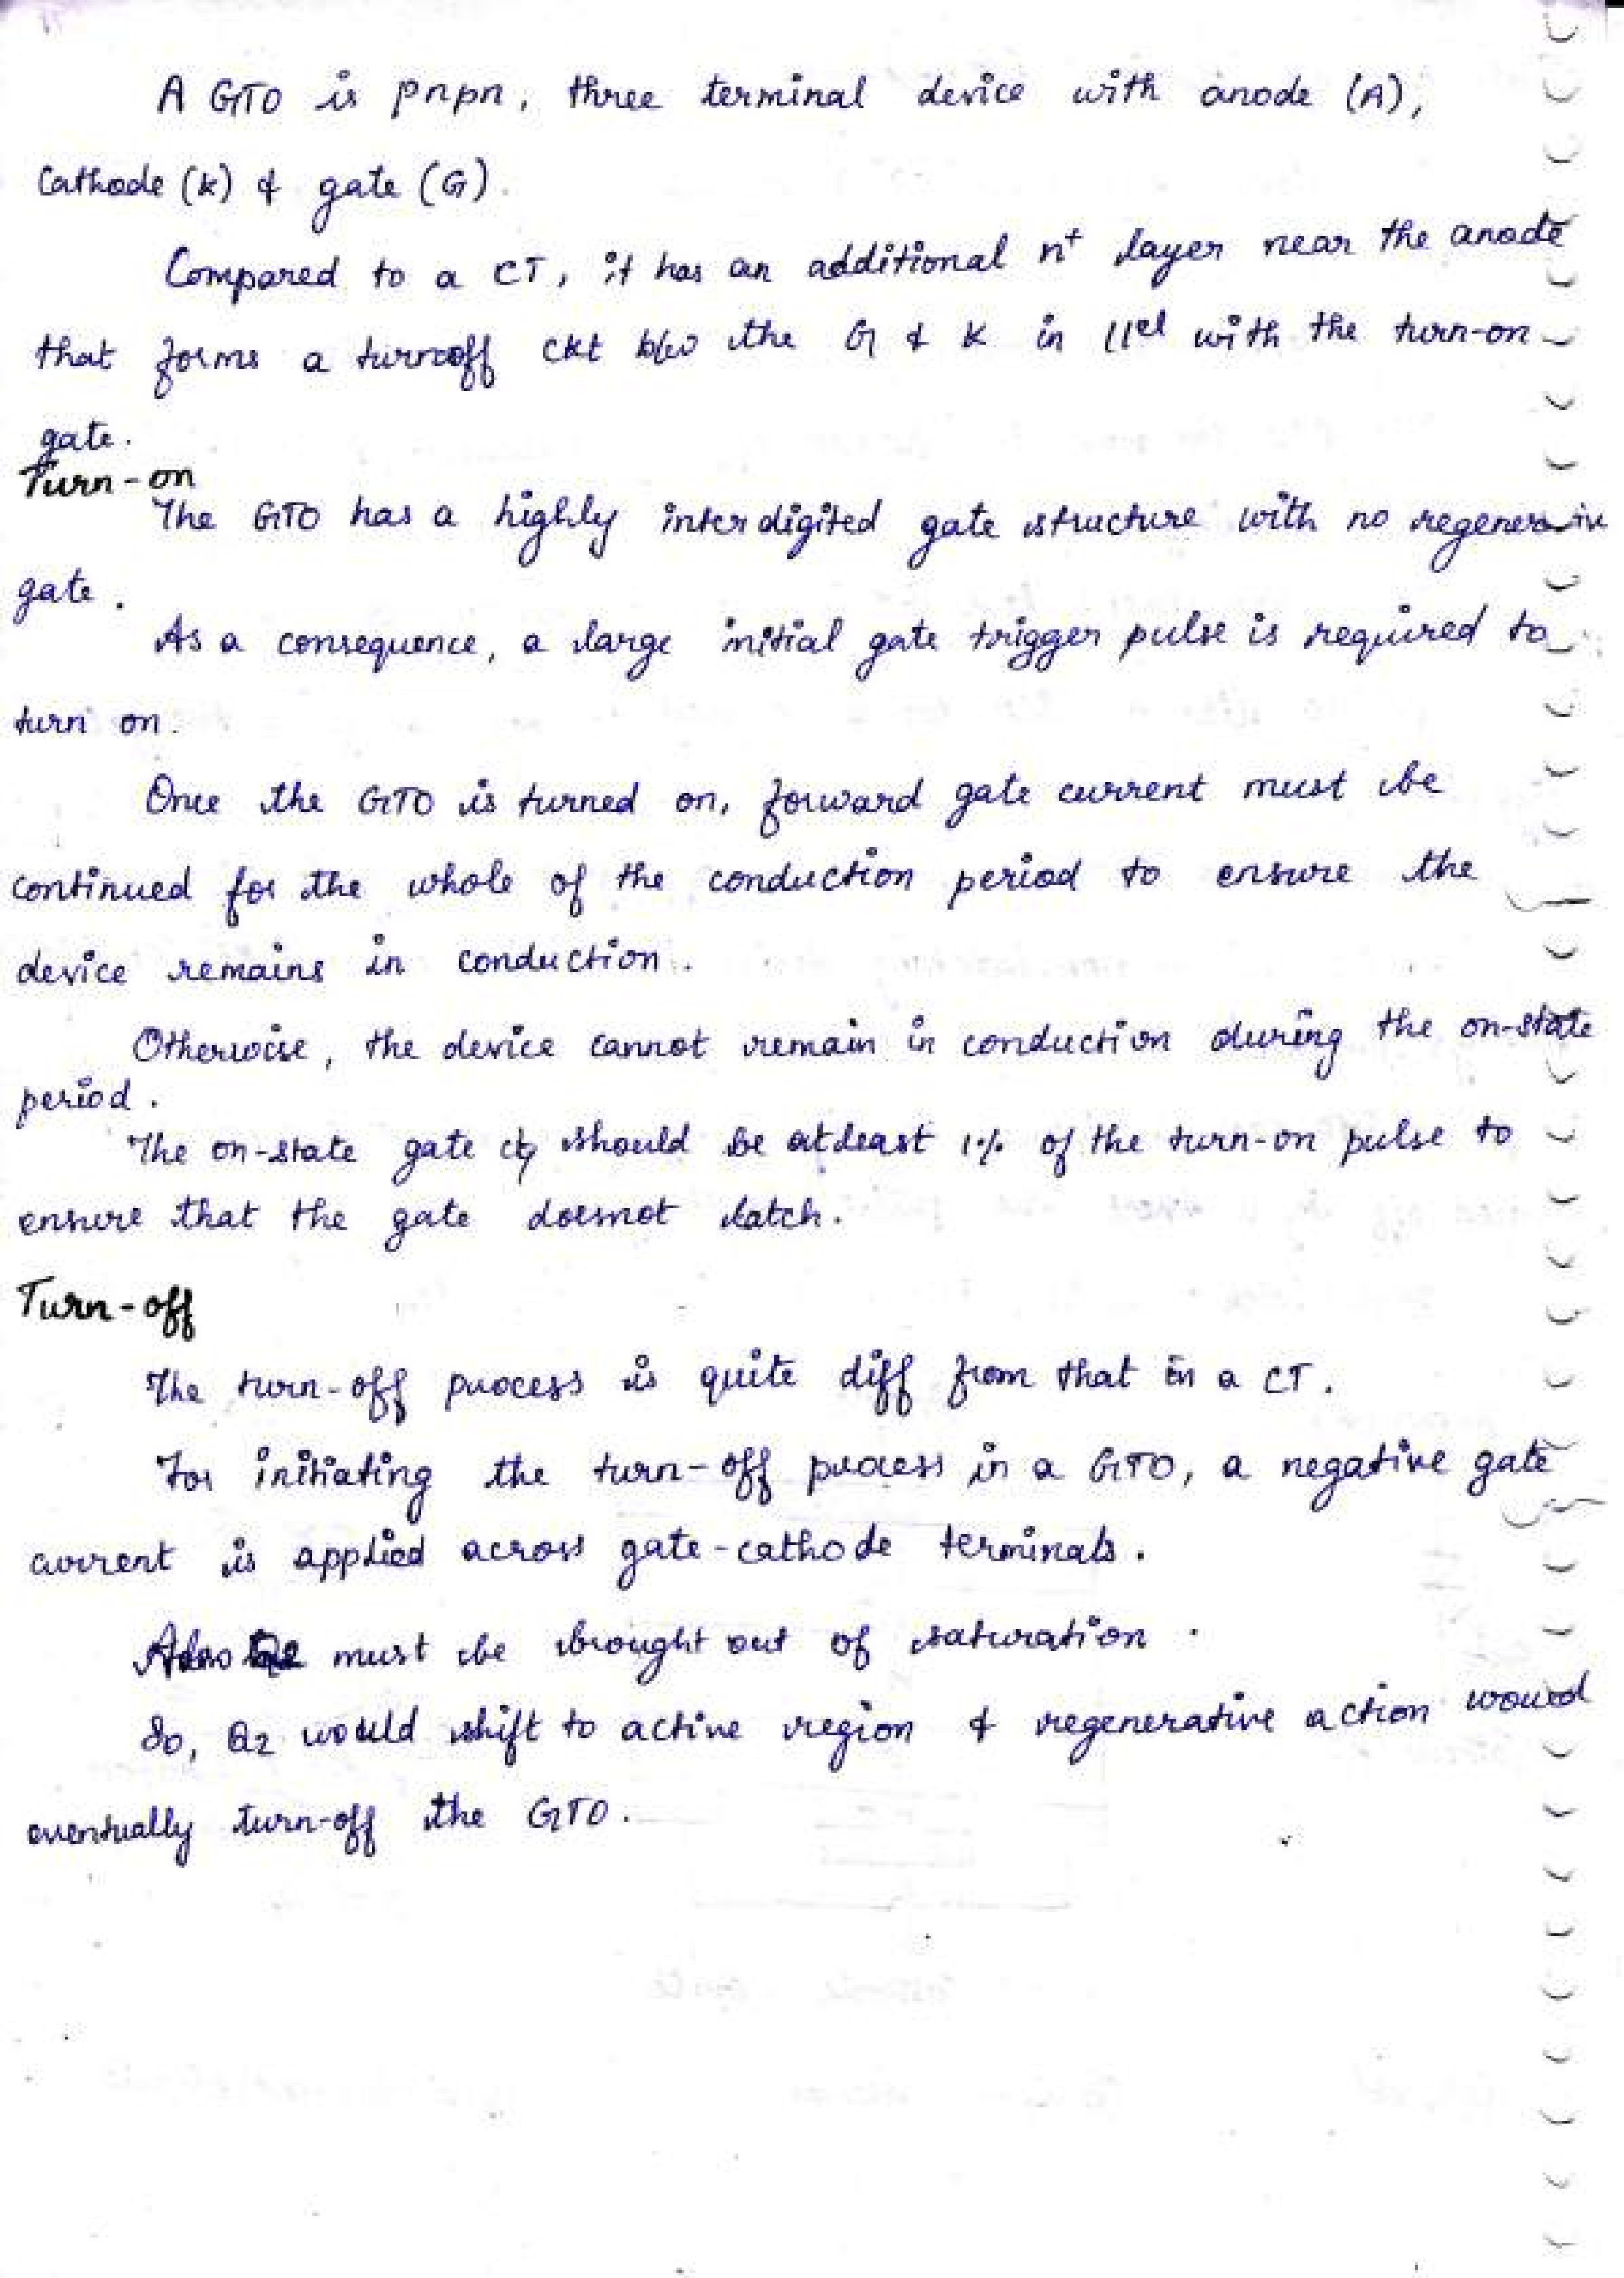 A GTO is pnpn, three terminal device with anode (A),
Cathode (K) & gate (G).
Compared to a CT, it has an additional n⁺ layer near the anode
that forms a turnoff ckt b/w the G & K in ||el with the turn-on
gate.
Turn-on
The GTO has a highly interdigited gate structure with no
gate.
As a consequence, a large initial gate trigger pulse is required to
turn on.
Once the GTO is turned on, forward gate current must be
continued for the whole of the conduction period to ensure the
device remains in conduction.
Otherwise, the device cannot remain in conduction during the on-state
period.
The on-state gate should be atleast 1% of the turn-on pulse to
ensure that the gate doesnot latch.
Turn-off
The turn-off process is quite diff from that in a CT.
For initiating the turn-off process in a GTO, a negative gate
current is applied across gate-cathode terminals.
Also Q2 must be brought out of saturation.
So, Q2 would shift to active region & regenerative action would
eventually turn-off the GTO.